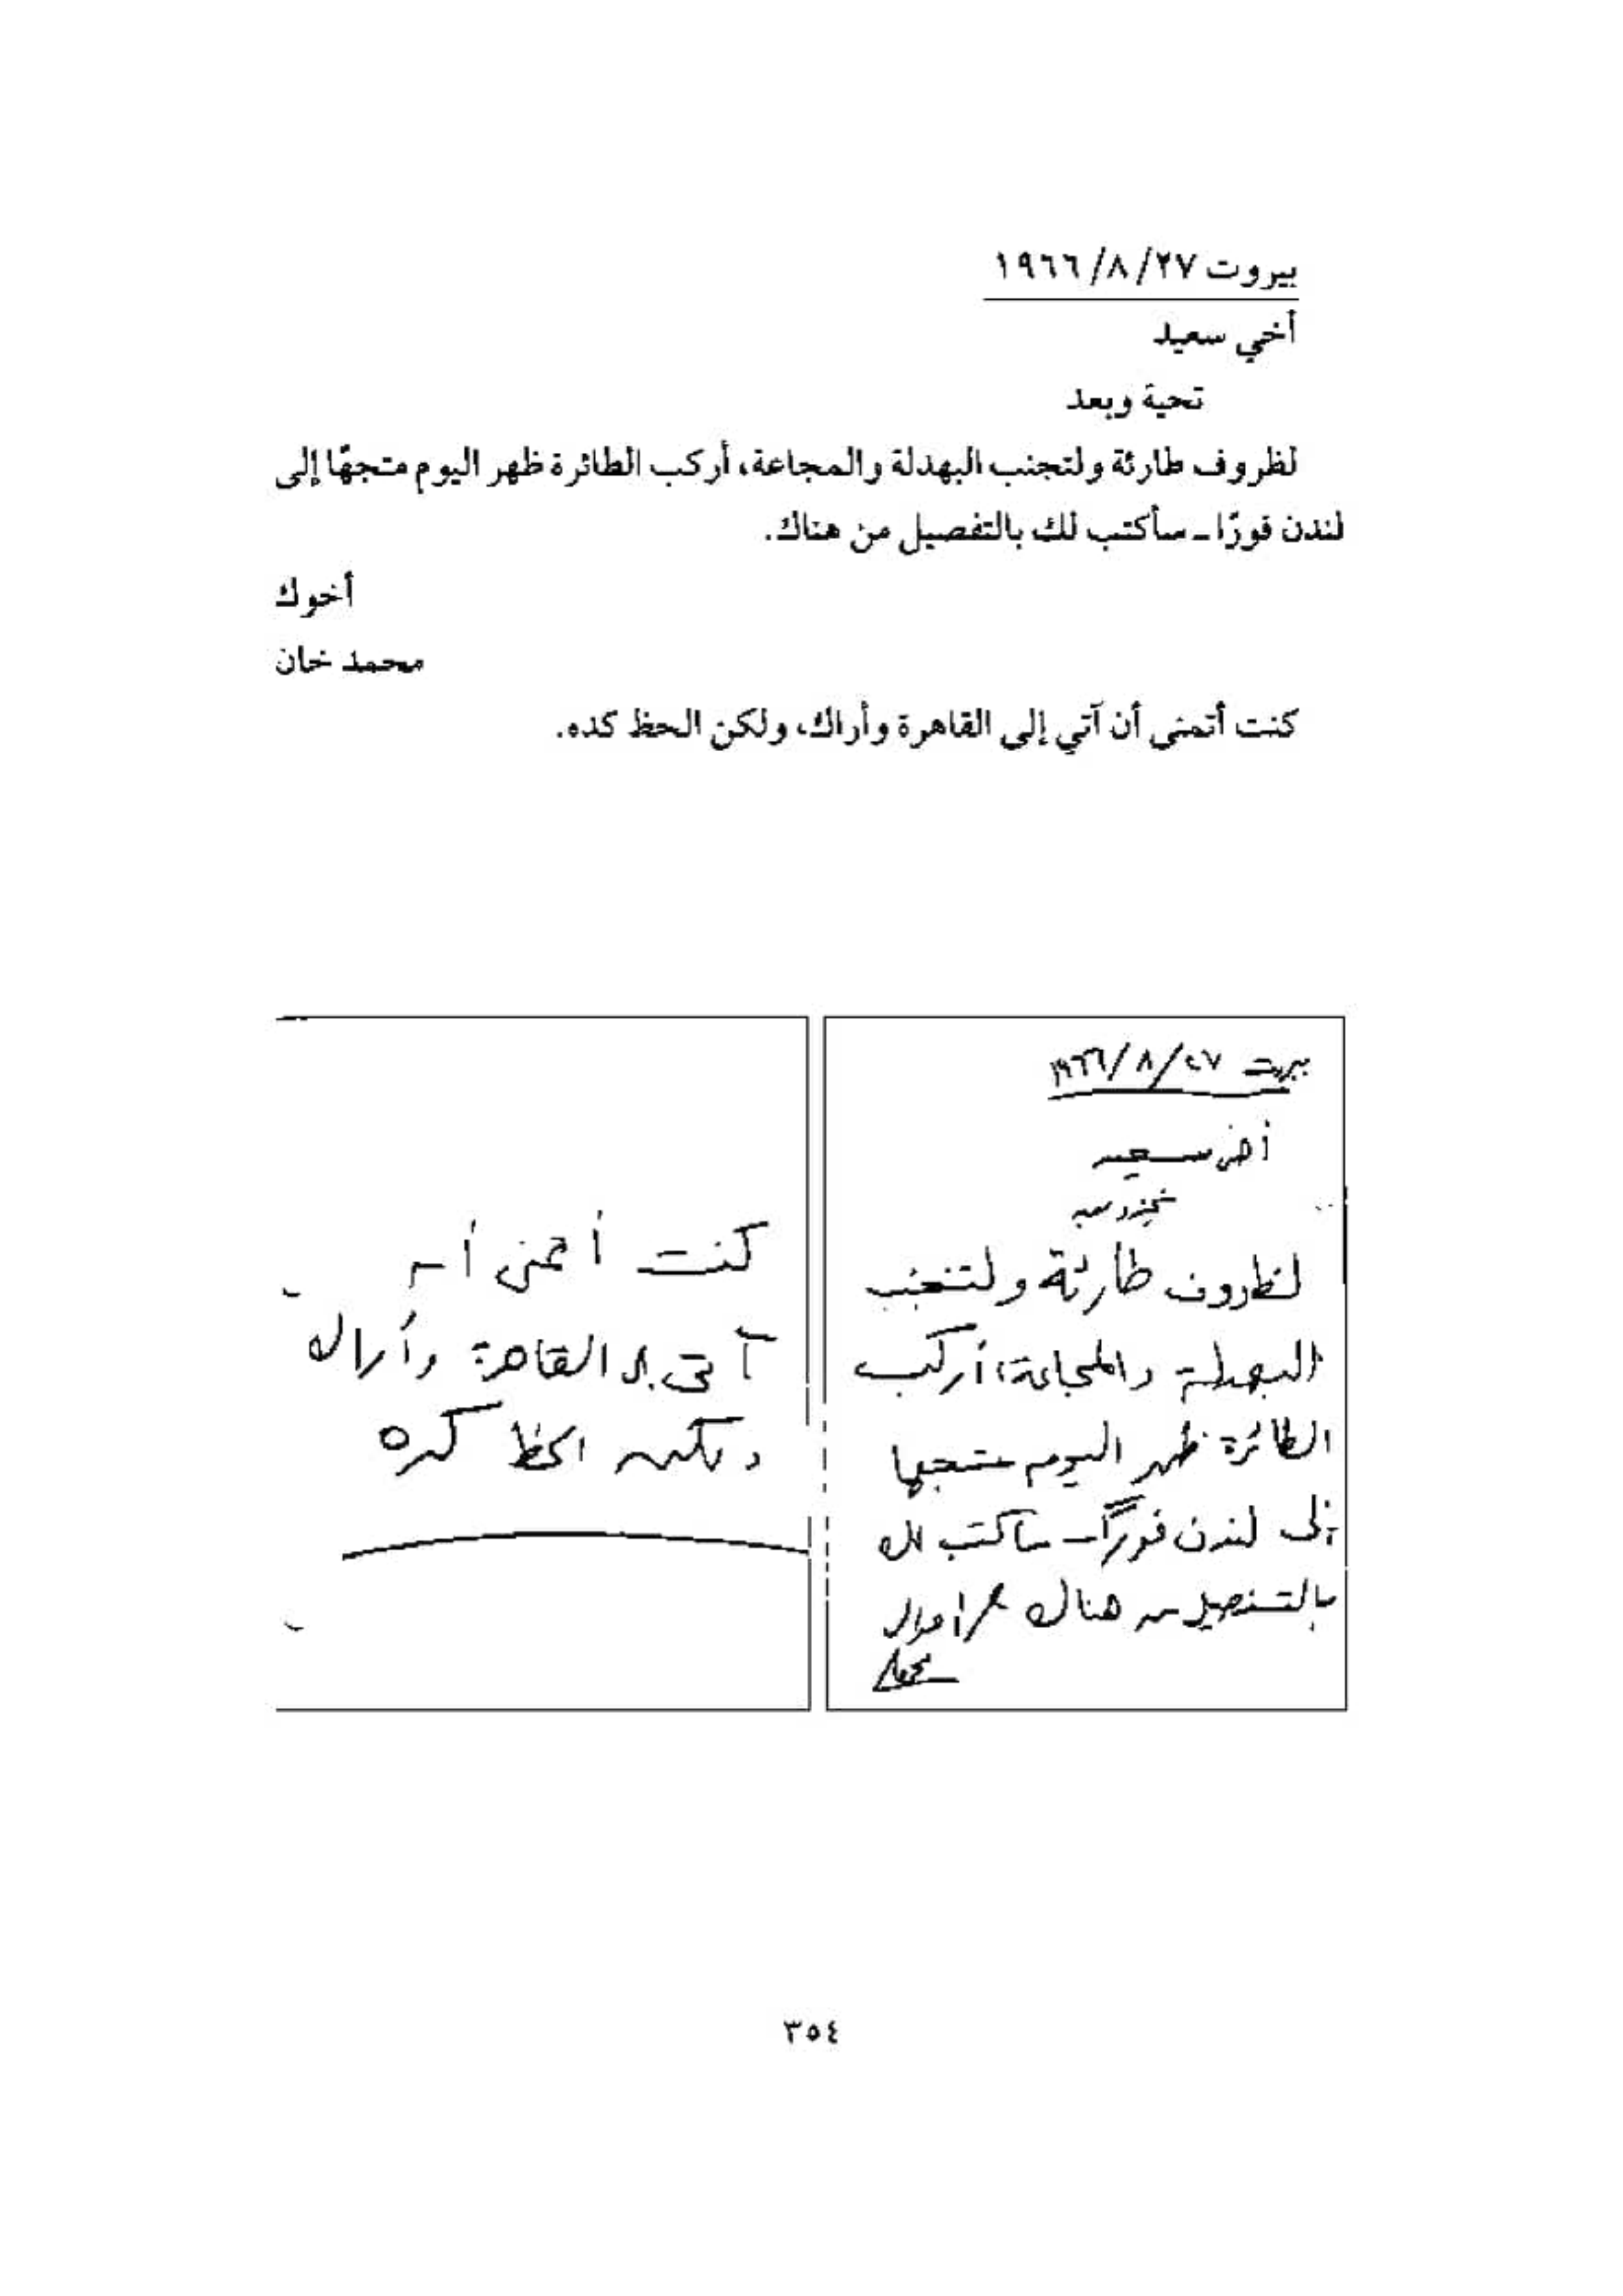 بيروت ٢٧/ ٨/ ١٩٦٦
أخي سعيد
تحية وبعد
لظروف طارئة ولتجنب البهدلة والمجاعة، أركب الطائرة ظهر اليوم متجهًا إلى
لندن فورًا ـ سأكتب لك بالتفصيل من هناك.
أخوك
محمد خان
كنت أتمنى أن آتي إلى القاهرة وأراك، ولكن الحظ كده.
بيروت ٢٧/٨/١٩٦٦
أخي سعيد
تحية وبعد
لظروف طارئة ولتجنب
البهدلة والمجاعة، أركب
الطائرة ظهر اليوم متجها
إلى لندن فوراً ـ سأكتب لك
بالتفصيل من هناك أخوك
كنت أتمنى أن
آتى إلى القاهرة وأراك
ولكن الحظ كده
٣٥٤